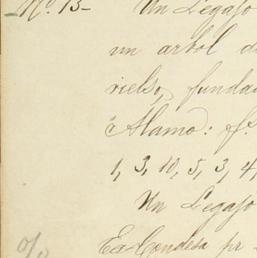 Nº 13- Un Legajo
un arbol d
rielso, funda
"Alamo: f.
1, 3, 10, 5, 3, 4,
Un Legajo
Ex Condesa pr
%